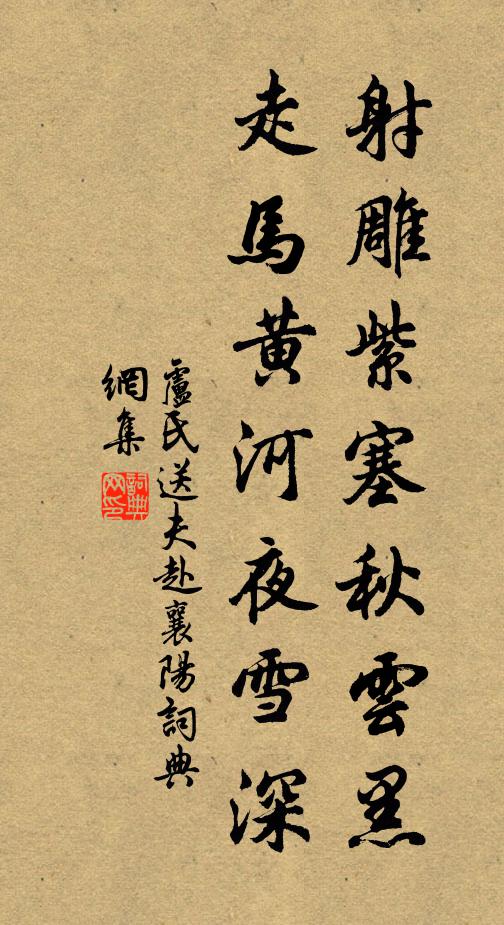 射雕紫塞秋雲黑
走馬黃河夜雪深
盧氏送夫赴襄陽詞典
網集
詞典
网印